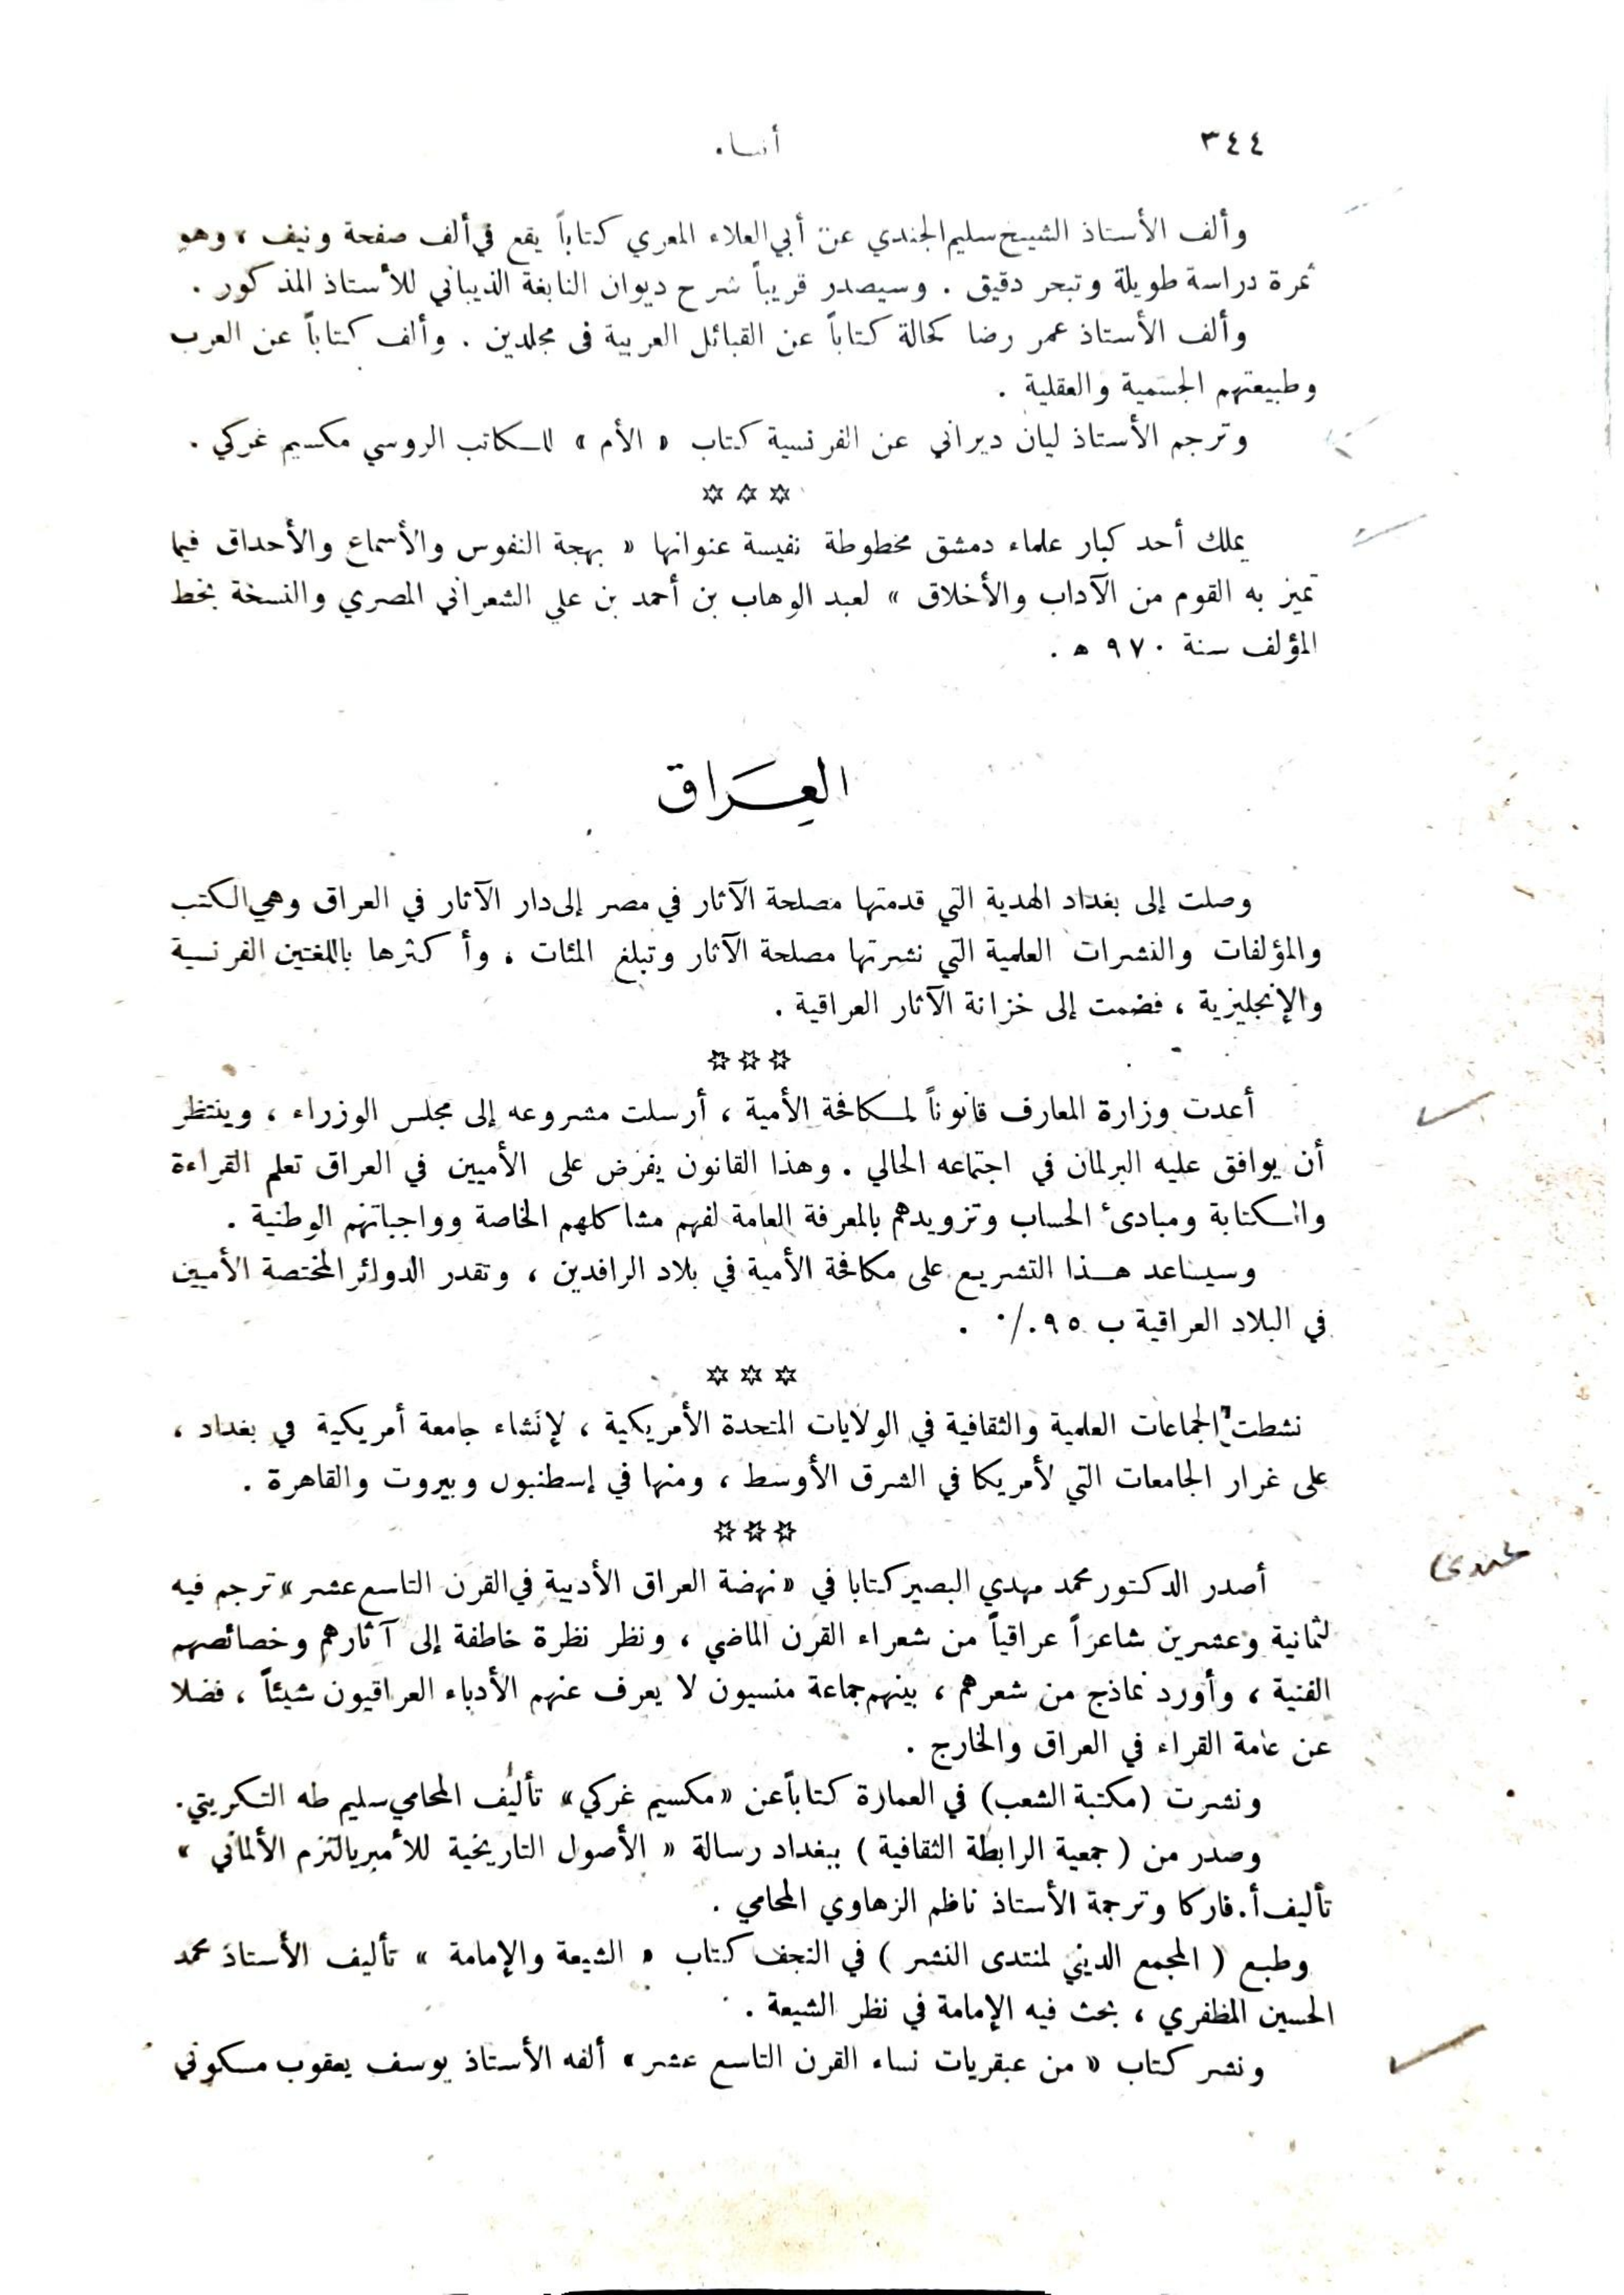 ٣٤٤
أنباء
وألف الأستاذ الشيخ سليم الجندي عن أبي العلاء المعري كتاباً يقع في ألف صفحة ونيف ، وهو
ثمرة دراسة طويلة وتبحر دقيق . وسيصدر قريباً شرح ديوان النابغة الذيباني للأستاذ المذكور .
وألف الأستاذ عمر رضا كحالة كتاباً عن القبائل العربية في مجلدين . وألف كتاباً عن العرب
وطبيعتهم الجسمية والعقلية .
وترجم الأستاذ ليان ديراني عن الفرنسية كتاب « الأم » للكاتب الروسي مكسيم غركي .
☆ ☆ ☆
يملك أحد كبار علماء دمشق مخطوطة نفيسة عنوانها « بهجة النفوس والأسماع والأحداق فيما
تميز به القوم من الآداب والأخلاق » لعبد الوهاب بن أحمد بن علي الشعراني المصري والنسخة بخط
المؤلف سنة ٩٧٠ هـ .
العِرَاق
وصلت إلى بغداد الهدية التي قدمتها مصلحة الآثار في مصر إلى دار الآثار في العراق وهي الكتب
والمؤلفات والنشرات العلمية التي نشرتها مصلحة الآثار وتبلغ المئات ، وأكثرها باللغتين الفرنسية
والإنجليزية ، فضمت إلى خزانة الآثار العراقية .
☆☆☆
أعدت وزارة المعارف قانوناً لمكافحة الأمية ، أرسلت مشروعه إلى مجلس الوزراء ، وينتظر
أن يوافق عليه البرلمان في اجتماعه الحالي . وهذا القانون يفرض على الأميين في العراق تعلم القراءة
والكتابة ومبادئ الحساب وتزويدهم بالمعرفة العامة لفهم مشاكلهم الخاصة وواجباتهم الوطنية .
وسيساعد هذا التشريع على مكافحة الأمية في بلاد الرافدين ، وتقدر الدوائر المختصة الأميين
في البلاد العراقية ب ٩٥ ./٠ .
☆ ☆ ☆
نشطت الجماعات العلمية والثقافية في الولايات المتحدة الأمريكية ، لإنشاء جامعة أمريكية في بغداد ،
على غرار الجامعات التي لأمريكا في الشرق الأوسط ، ومنها في إسطنبول وبيروت والقاهرة .
☆☆☆
أصدر الدكتور محمد مهدي البصير كتابا في « نهضة العراق الأدبية في القرن التاسع عشر » ترجم فيه
لثمانية وعشرين شاعراً عراقياً من شعراء القرن الماضي ، ونظر نظرة خاطفة إلى آثارهم وخصائصهم
الفنية ، وأورد نماذج من شعرهم ، بينهم جماعة منسيون لا يعرف عنهم الأدباء العراقيون شيئاً ، فضلا
عن عامة القراء في العراق والخارج .
ونشرت (مكتبة الشعب) في العمارة كتاباً عن « مكسيم غركي » تأليف المحامي سليم طه التكريتي .
وصدر من ( جمعية الرابطة الثقافية ) ببغداد رسالة « الأصول التاريخية للأمبريالتزم الألماني »
تأليف أ. فاركا وترجمة الأستاذ ناظم الزهاوي المحامي .
وطبع ( المجمع الديني لمنتدى النشر ) في النجف كتاب « الشيعة والإمامة » تأليف الأستاذ محمد
الحسين المظفري ، بحث فيه الإمامة في نظر الشيعة .
ونشر كتاب « من عبقريات نساء القرن التاسع عشر » ألفه الأستاذ يوسف يعقوب مسكوني